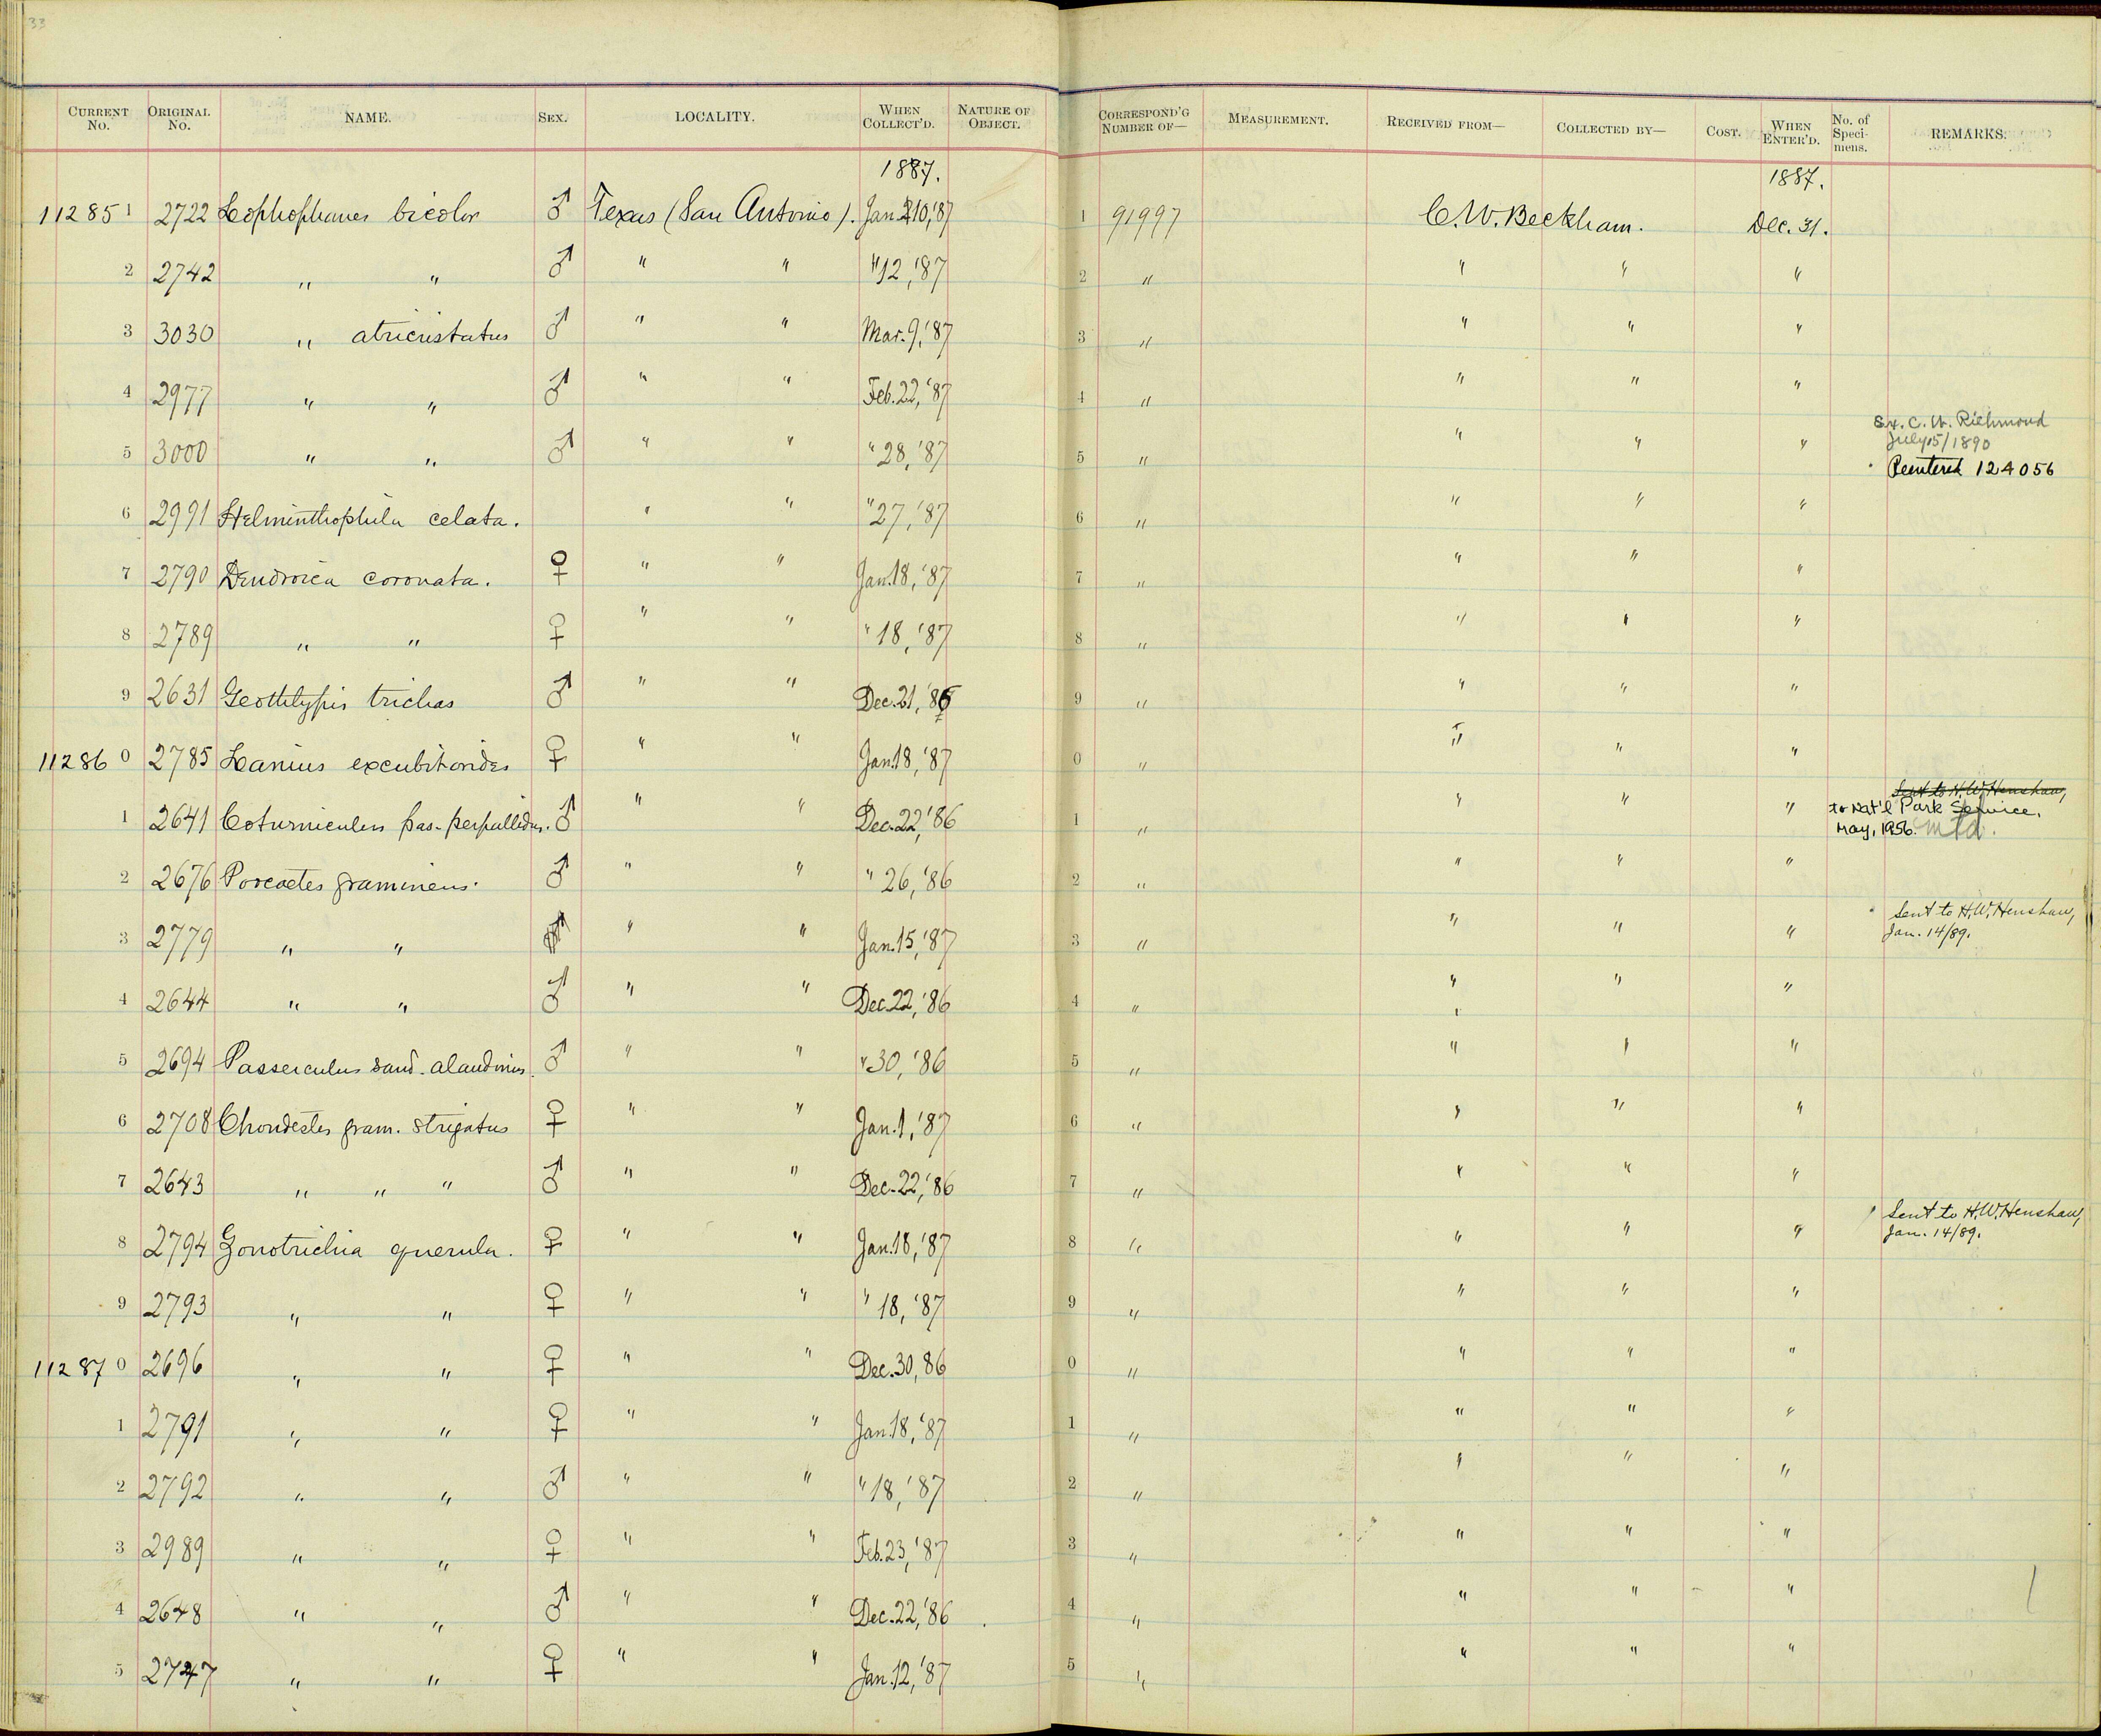 33
CURRENT No. ORIGINAL No. NAME. SEX. LOCALITY. WHEN COLLECT'D. NATURE OF OBJECT. CORRESPOND'G NUMBER OF— MEASUREMENT. RECEIVED FROM— COLLECTED BY— COST. WHEN ENTER'D. No. of Specimens. REMARKS.
1887. 1887.
11285 1 2722 Lophophanes bicolor ♂ Texas (San Antonio). Jan. 10, '87 1 91997 C. W. Beckham. Dec. 31.
2 2742 " " ♂ " " " 12, '87 2 " " " "
3 3030 " atricristatus ♂ " " Mar. 9, '87 3 " " " "
4 2977 " " ♂ " " Feb. 22, '87 4 " " " "
5 3000 " " ♂ " " " 28, '87 5 " " " " Ex. C. W. Richmond
July 15/1890
Reentered 124056
6 2991 Helminthophila celata. " " " 27, '87 6 " " " "
7 2790 Dendroica coronata. ♀ " " Jan. 18, '87 7 " " " "
8 2789 " " ♀ " " " 18, '87 8 " " " "
9 2631 Geothlypis trichas ♂ " " Dec. 21, '86 9 " " " "
11286 0 2785 Lanius excubitorides ♀ " " Jan. 18, '87 0 " " " "
1 2641 Coturniculus pas. perpallidus. ♂ " " Dec. 22, '86 1 " " " " Sent to H. W. Henshaw,
to Nat'l Park Service.
May, 1956.
2 2676 Poocaetes gramineus. ♂ " " " 26, '86 2 " " " "
3 2779 " " " " Jan. 15, '87 3 " " " " Sent to H. W. Henshaw,
Jan. 14/89.
4 2644 " " ♂ " " Dec. 22, '86 4 " " " "
5 2694 Passerculus sand. alaudinus. ♂ " " " 30, '86 5 " " " "
6 2708 Chondestes gram. strigatus ♀ " " Jan. 1, '87 6 " " " "
7 2643 " " " ♂ " " Dec. 22, '86 7 " " " "
8 2794 Zonotrichia querula. ♀ " " Jan. 18, '87 8 " " " " Sent to H. W. Henshaw,
Jan. 14/89.
9 2793 " " ♀ " " " 18, '87 9 " " " "
11287 0 2696 " " ♀ " " Dec. 30, 86 0 " " " "
1 2791 " " ♀ " " Jan. 18, '87 1 " " " "
2 2792 " " ♂ " " " 18, '87 2 " " " "
3 2989 " " ♀ " " Feb. 23, '87 3 " " " "
4 2648 " " ♂ " " Dec. 22, '86 4 " " " "
5 2747 " " ♀ " " Jan. 12, '87 5 " " " "